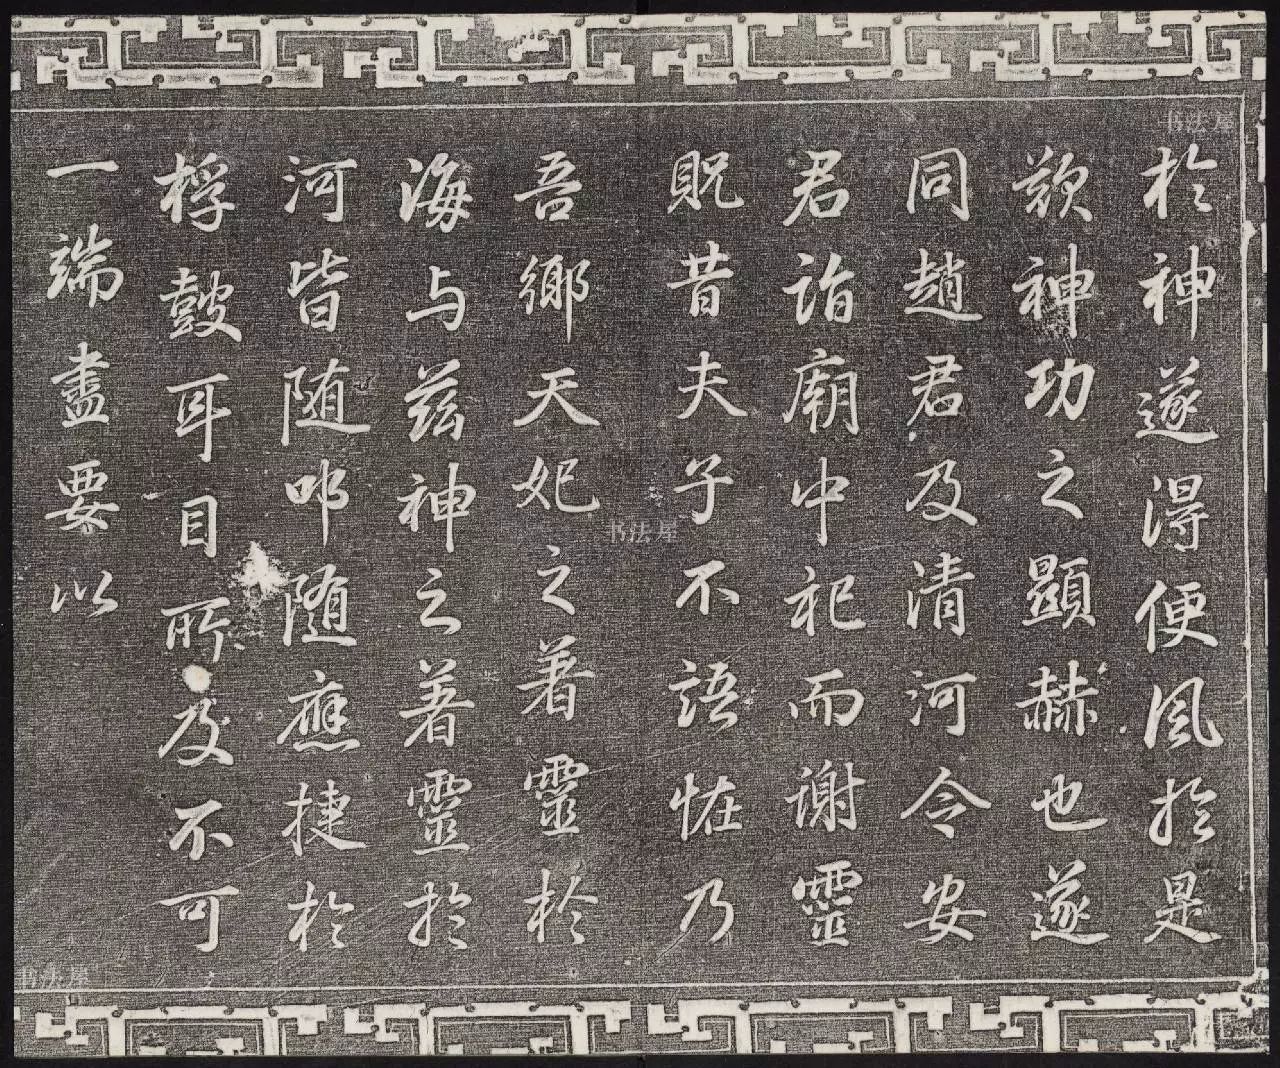 於神遂得便風於是
歎神功之顯赫也遂
同趙君及清河令安
君詣廟中祀而謝靈
貺昔夫子不語恠乃
吾鄉天妃之著靈於
海与兹神之著靈於
河皆随叩随應捷於
桴鼓耳目所及不可
一端盡要以
书法屋
书法屋
书法屋